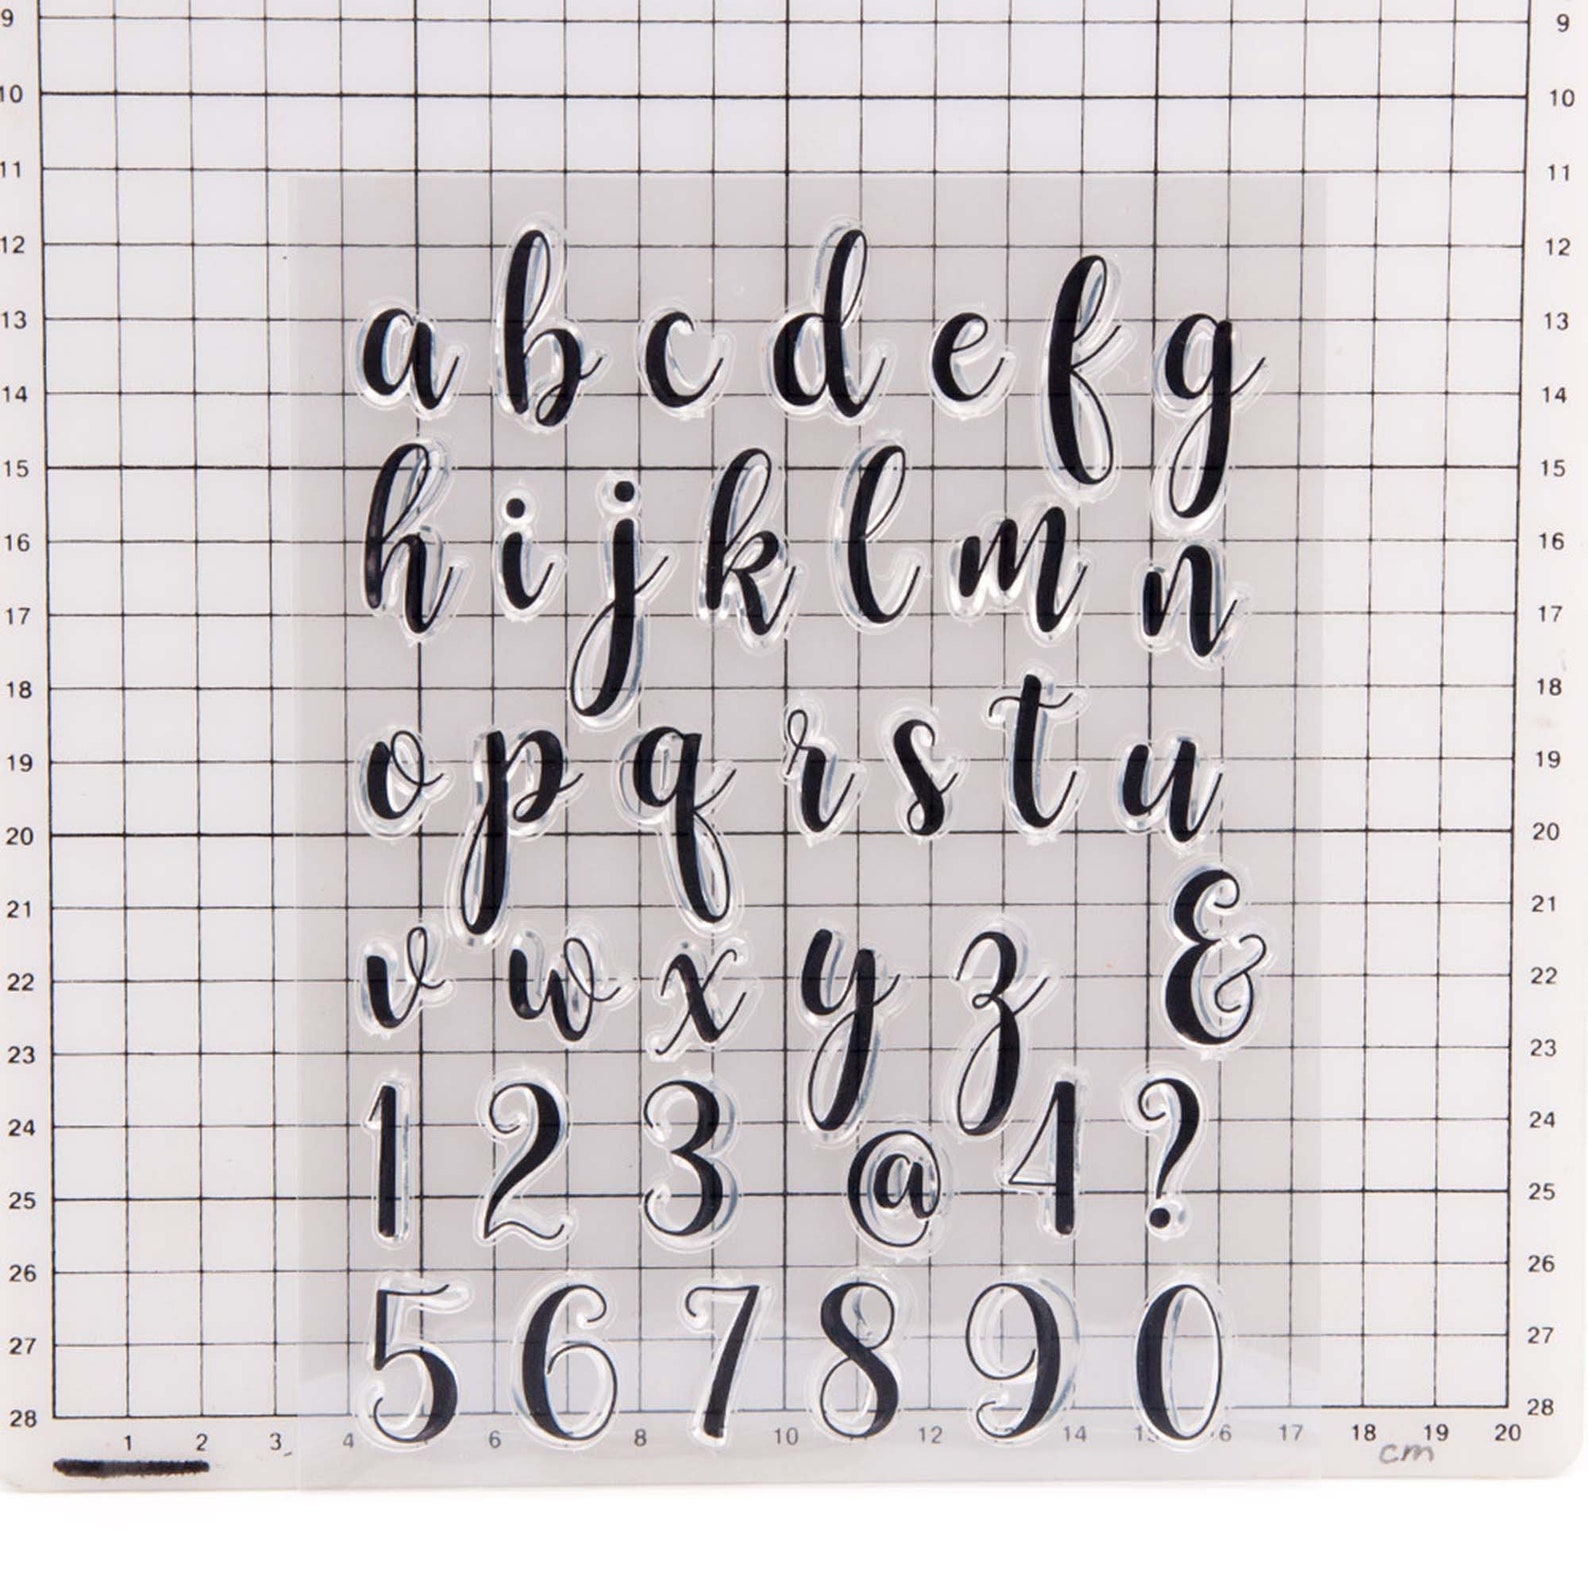 9 9
10 10
11 11
12 12
13 a b c d e f g 13
14 14
15 15
16 h i j k l m n 16
17 17
18 18
19 o p q r s t u 19
20 20
21 21
22 v w x y z & 22
23 23
24 1 2 3 @ 4 ? 24
25 25
26 26
27 5 6 7 8 9 0 27
28 28
1 2 3 4 6 8 10 12 14 15 16 17 18 19 20
cm